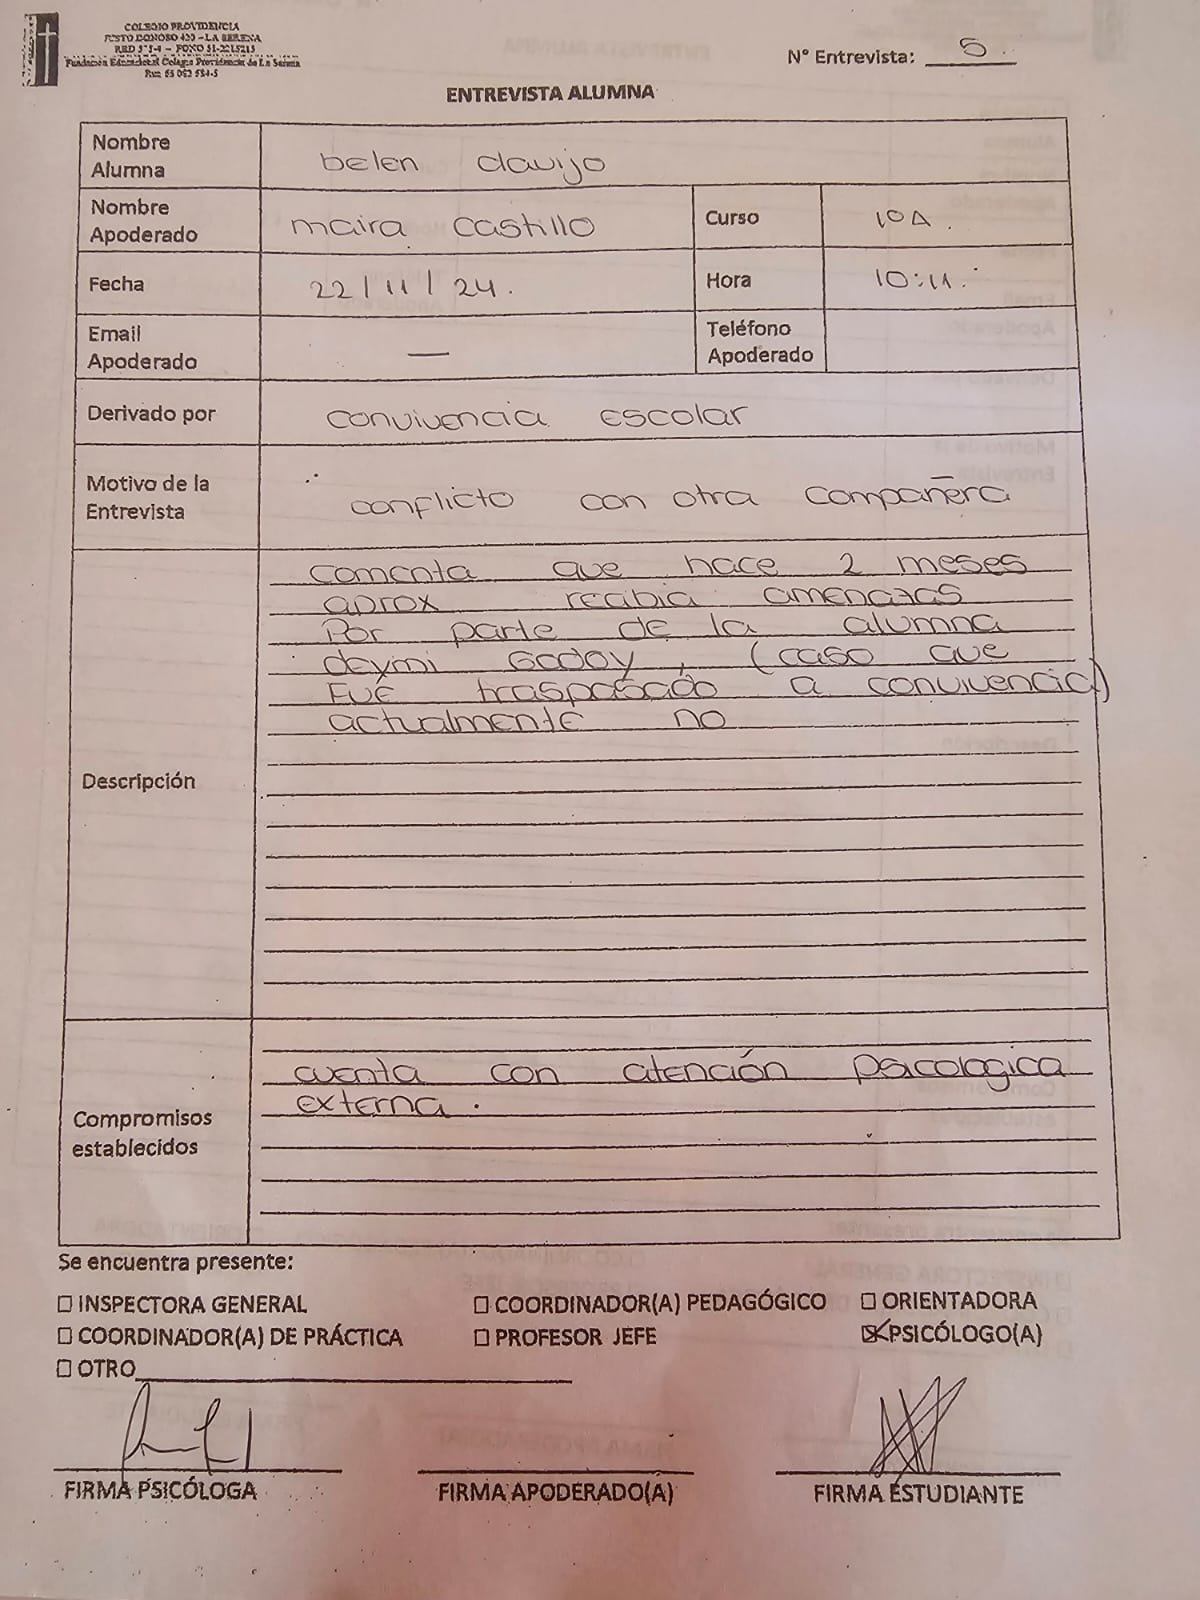 COLEGIO PROVIDENCIA
JUSTO DONOSO 420 – LA SERENA
Fundación Educacional Colegio Providencia de La Serena
N° Entrevista: 5
ENTREVISTA ALUMNA
Nombre Alumna belen clavijo
Nombre Apoderado maira castillo Curso 10A.
Fecha 22/11/24. Hora 10:11.
Email Apoderado — Teléfono Apoderado
Derivado por convivencia escolar
Motivo de la Entrevista conflicto con otra compañera
Descripción
comenta que hace 2 meses
aprox recibia amenazas
Por parte de la alumna
deymi Godoy, (caso que
FUE traspasado a convivencia)
actualmente no
Compromisos establecidos
cuenta con atención psicologica
externa.
Se encuentra presente:
☐ INSPECTORA GENERAL ☐ COORDINADOR(A) PEDAGÓGICO ☐ ORIENTADORA
☐ COORDINADOR(A) DE PRÁCTICA ☐ PROFESOR JEFE ☒ PSICÓLOGO(A)
☐ OTRO
FIRMA PSICÓLOGA FIRMA APODERADO(A) FIRMA ESTUDIANTE